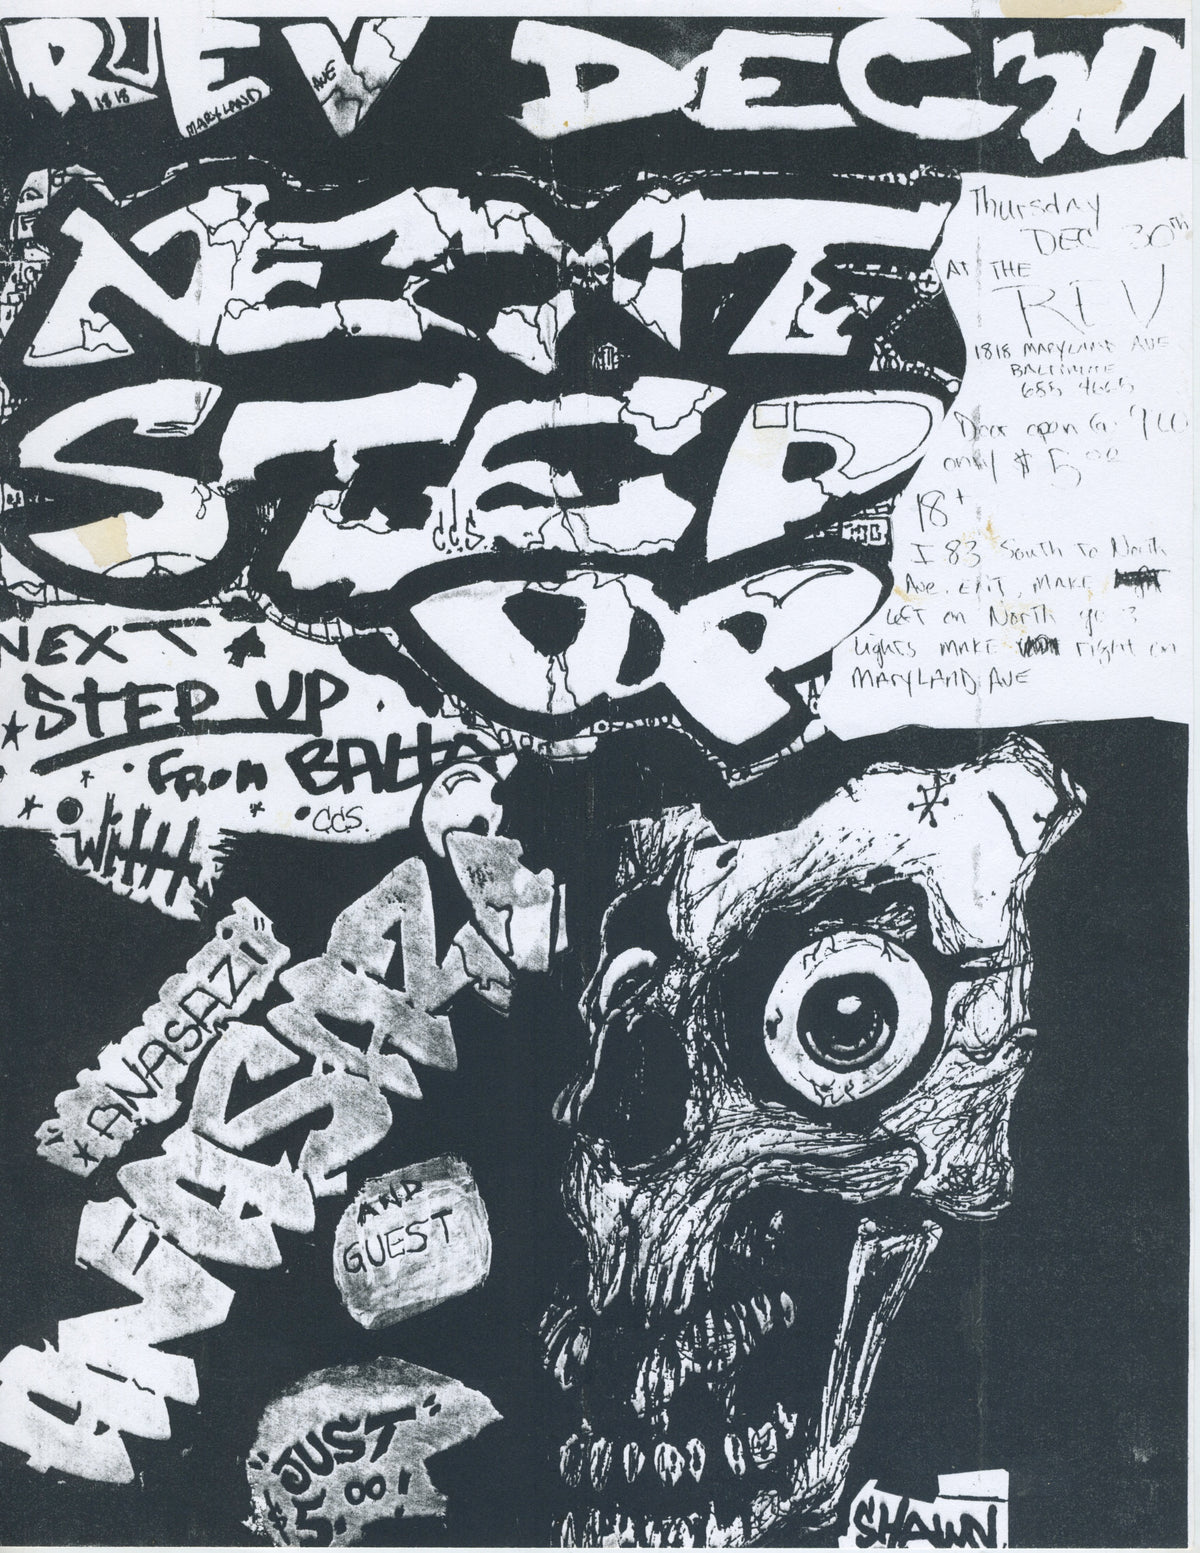 REV DEC 30
1818
MARYLAND
AVE
NEXT
STEP
UP
C.C.S.
Thursday
DEC 30th
AT THE
REV
1818 MARYLAND AVE
BALTIMORE
685 4665
Door open @
only $5.00
18+
I 83 South to North
Ave. Exit, MAKE
Left on North go 3
Lights MAKE right on
MARYLAND AVE
NEXT
STEP UP
From BALTO
C.C.S.
Withh
"ANASAZI"
ANASAZI
AND
GUEST
"JUST"
$5.00!
SHAWN